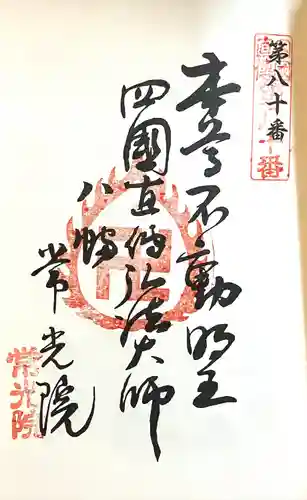 第八十番
本尊不動明王
四國直傳弘法大師
八幡
常光院
常光院